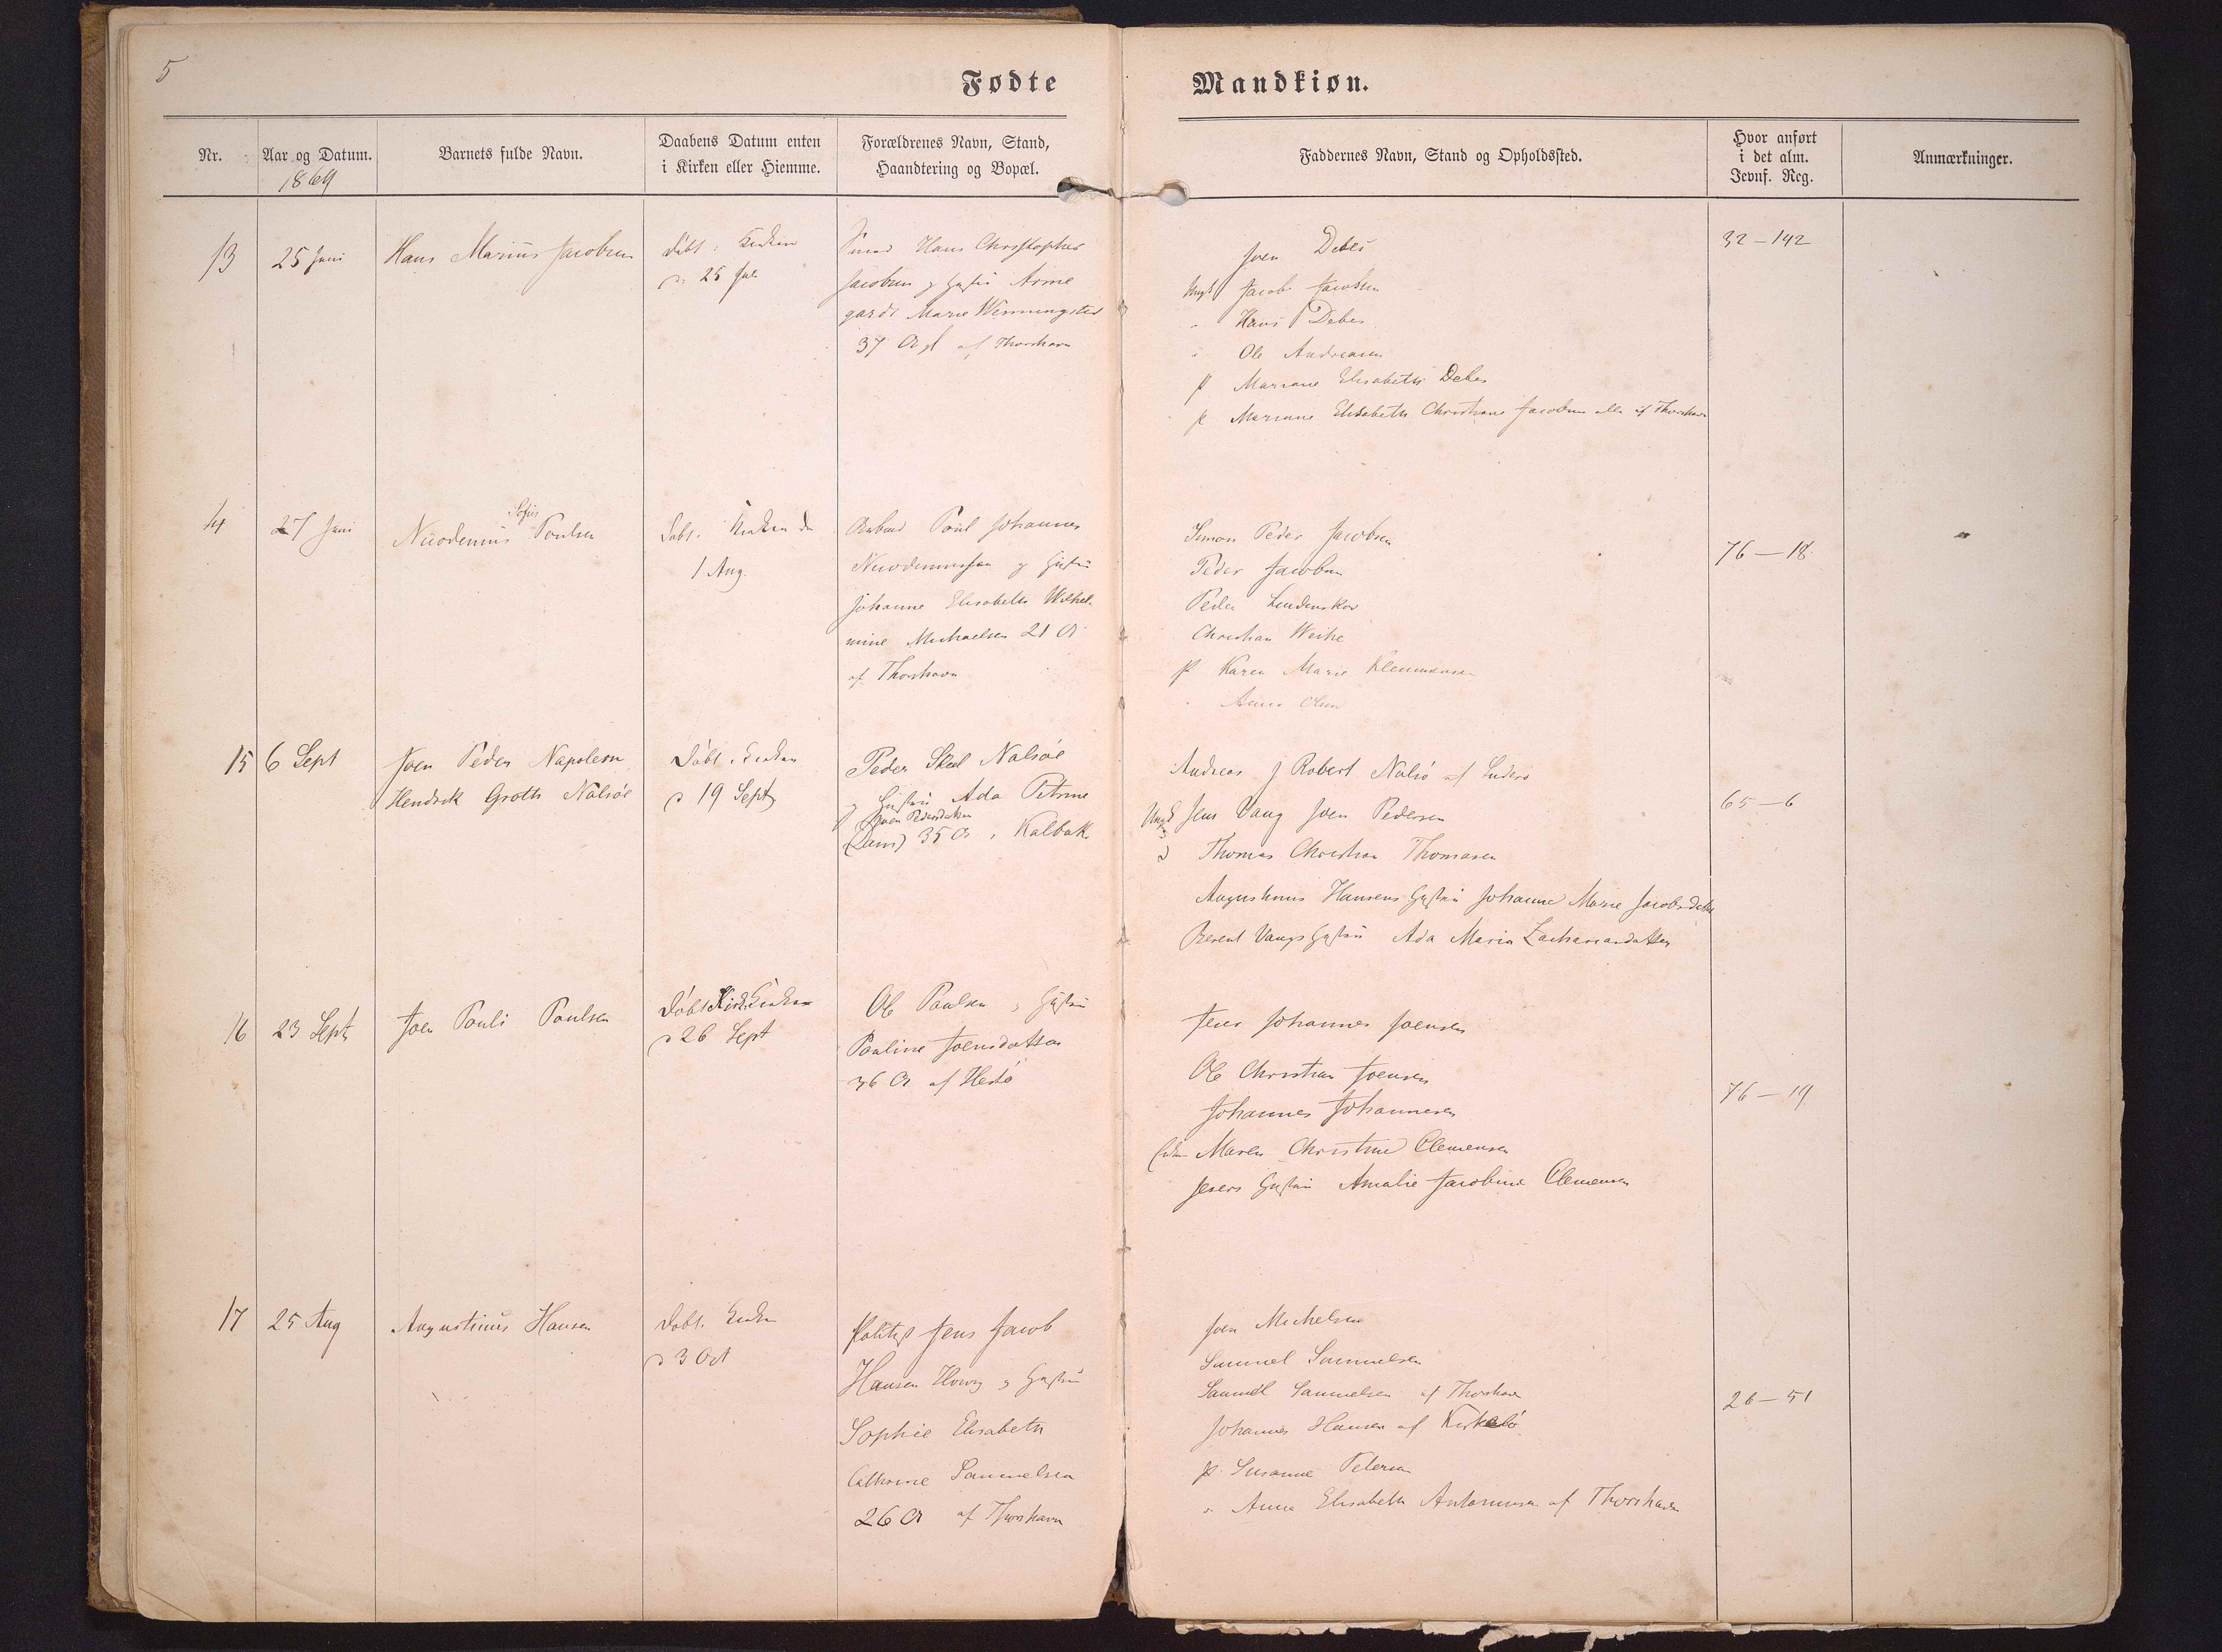 5
Fødte
Mandkiøn.
Nr.
Aar og Datum.
1869
Barnets fulde Navn.
Daabens Datum enten
i Kirken eller Hiemme.
Forældrenes Navn, Stand,
Haandtering og Bopæl.
Faddernes Navn, Stand og Opholdssted.
Hvor anført
i det alm.
Jevnf. Reg.
Anmærkninger.
13
25 Juni
Hans Marius Jacobsen
Døbt i Kirken
d: 25 Juli
Hans Christopher
Jacobsen g Hustru Arme
gardt Marie Wenningsted
37 af Thorshavn
Joen Debes
Ungk Jacob Jacobsen
" Hans Debes
" Ole Andreasen
P Mariane Elisabeth Debes
P Mariane Elisabeth Christiane Jacobsen alle af Thorshavn
32 - 142
14
27 Juni
Sofus
Nicodemus Poulsen
Døbt i Kirken d
1 Aug.
Poul Johannes
Nicodemussen g Hustru
Johanne Elisabeth Wilhel-
mine Michaelsen 21 A
af Thorshavn
Simon Peder Jacobsen
Peder Jacobsen
Peder Lindenskov
Christian Weihe
P Karen Marie Klemmensen
" Anna Olsen
76 - 18
15
6 Sept
Joen Peder Napoleon
Hendrik Groth Nalsøe
Døbt i Kirken
d 19 Sept
Peder Skeel Nalsøe
g Hustru Ada Petrine
Joen Pedersdatter
35 A i Kalbak
Andreas g Robert Nalsø af Sudero
Ungk Jens Vang Joen Pedersen
d Thomas Christian Thomasen
Augustinus Hansens Hustru Johanne Marie Jacobsdatter
Berent Vangs Hustru Ada Maria Zachariasdatter
65 - 6
16
23 Sept
Joen Pouli Poulsen
Døbt i Kirken
d 26 Sept
Ole Poulsen g Hustru
Pauline Joensdatter
36 A af Hestø
Jens Johannes Joensen
Ole Christian Joensen
Johannes Johannesen
Maren Christine Clemensen
Hustru Amalie Jacobine Clemensen
76 - 19
17
25 Aug
Augustinus Hansen
Døbt i Kirken
d 3 Oct
Jens Jacob
Hansen g Hustru
Sophie Elisabeth
Cathrine Samuelsen
26 A af Thorshavn
Joen Michelsen
Samuel Samuelsen
Samuel Samuelsen af Thorshavn
Johannes Hansen af Kirkebø
P Susanne Petersen
" Anna Elisabeth Antoniussen af Thorshavn
26 - 51